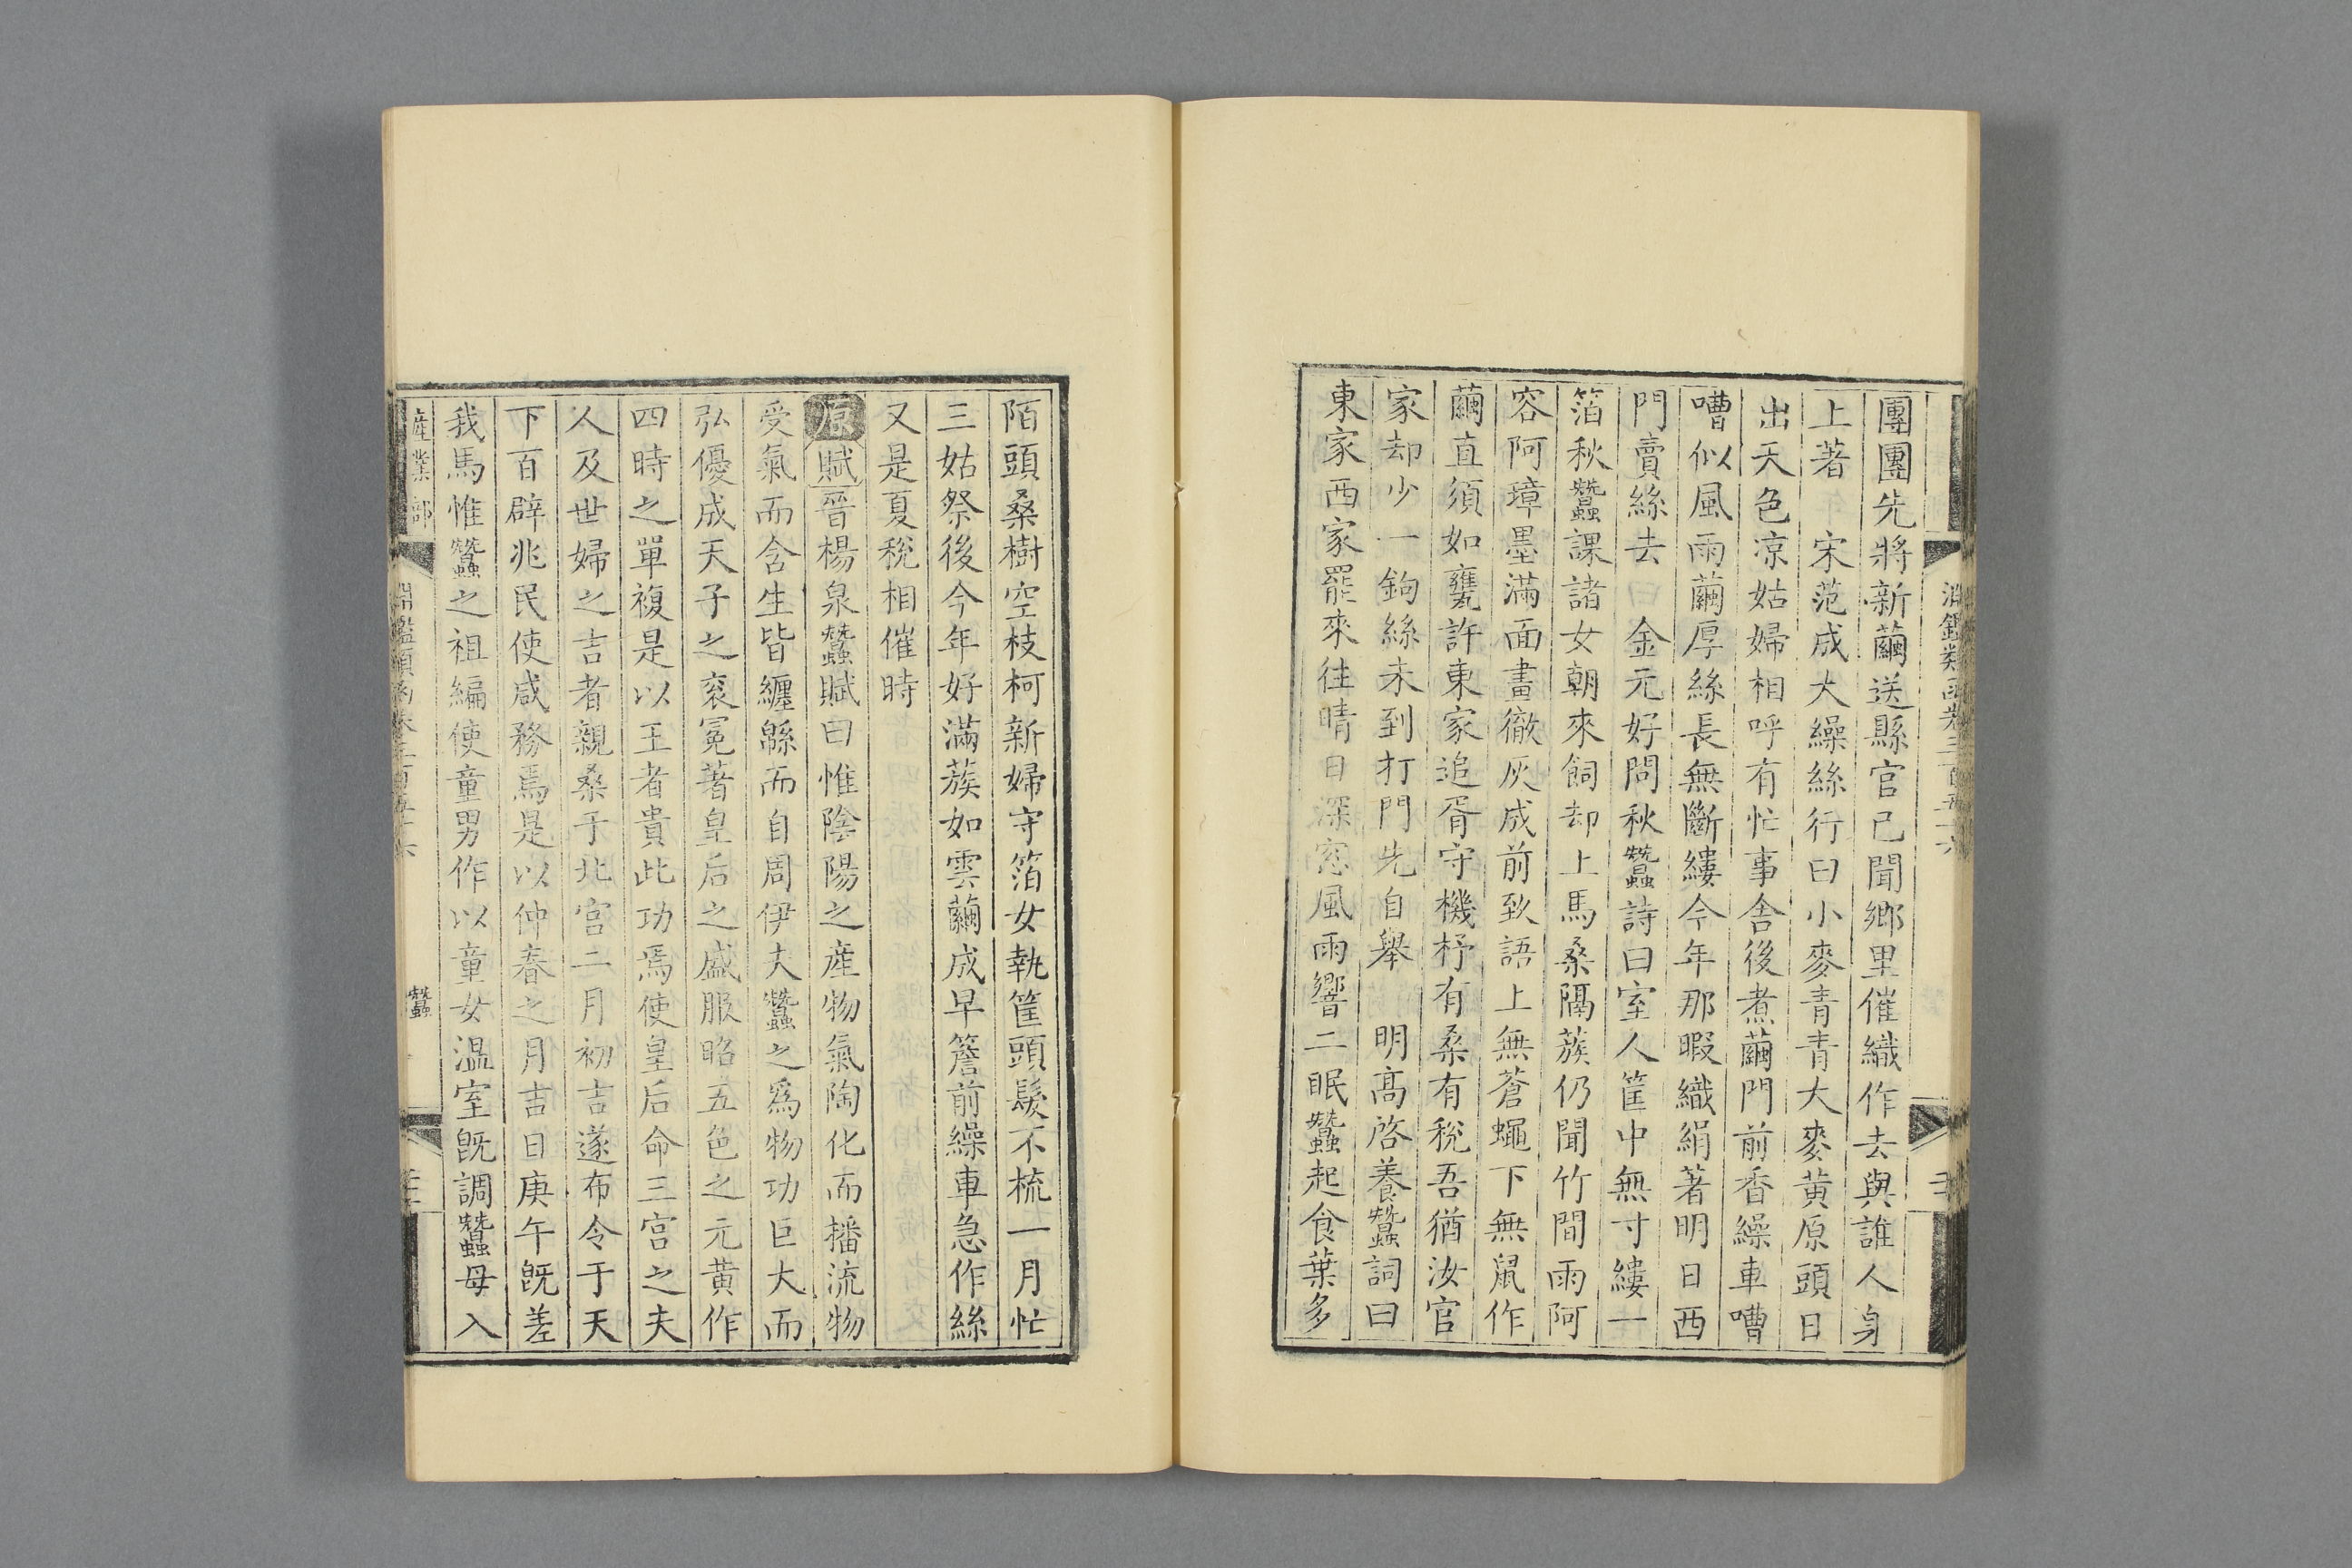 團團先將新繭送縣官已聞鄉里催織作去與誰人身
上著　宋范成大繰絲行曰小麥青青大麥黃原頭日
出天色凉姑婦相呼有忙事舍後煮繭門前香繰車嘈
嘈似風雨繭厚絲長無斷縷今年那暇織絹著明日西
門賣絲去　金元好問秋蠶詩曰室人筐中無寸縷一
箔秋蠶課諸女朝來飼却上馬桑隔蔟仍聞竹間雨阿
容阿璋墨滿面畫徹灰成前致語上無蒼蠅下無鼠作
繭直須如甕許東家追胥守機杼有桑有稅吾猶汝官
家却少一鉤絲未到打門先自舉　明高啓養蠶詞曰
東家西家罷來往晴日深窓風雨響二眠蠶起食葉多
陌頭桑樹空枝柯新婦守箔女執筐頭髮不梳一月忙
三姑祭後今年好滿蔟如雲繭成早簷前繰車急作絲
又是夏稅相催時
原賦晉楊泉蠶賦曰惟陰陽之產物氣陶化而播流物
受氣而含生皆纏緜而自周伊夫蠶之爲物功巨大而
弘優成天子之衮冕著皇后之盛服昭五色之元黃作
四時之單複是以王者貴此功焉使皇后命三宮之夫
人及世婦之吉者親桑于北宮二月初吉遂布令于天
下百辟兆民使咸務焉是以仲春之月吉日庚午旣差
我馬惟蠶之祖編使童男作以童女溫室旣調蠶母入
產業部
淵鑑類函卷三百五十六
蠶